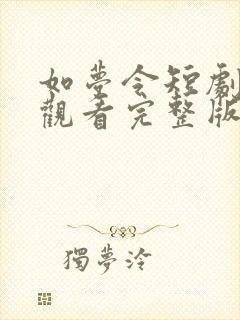 如夢令短劇
觀看完整版
獨夢泠